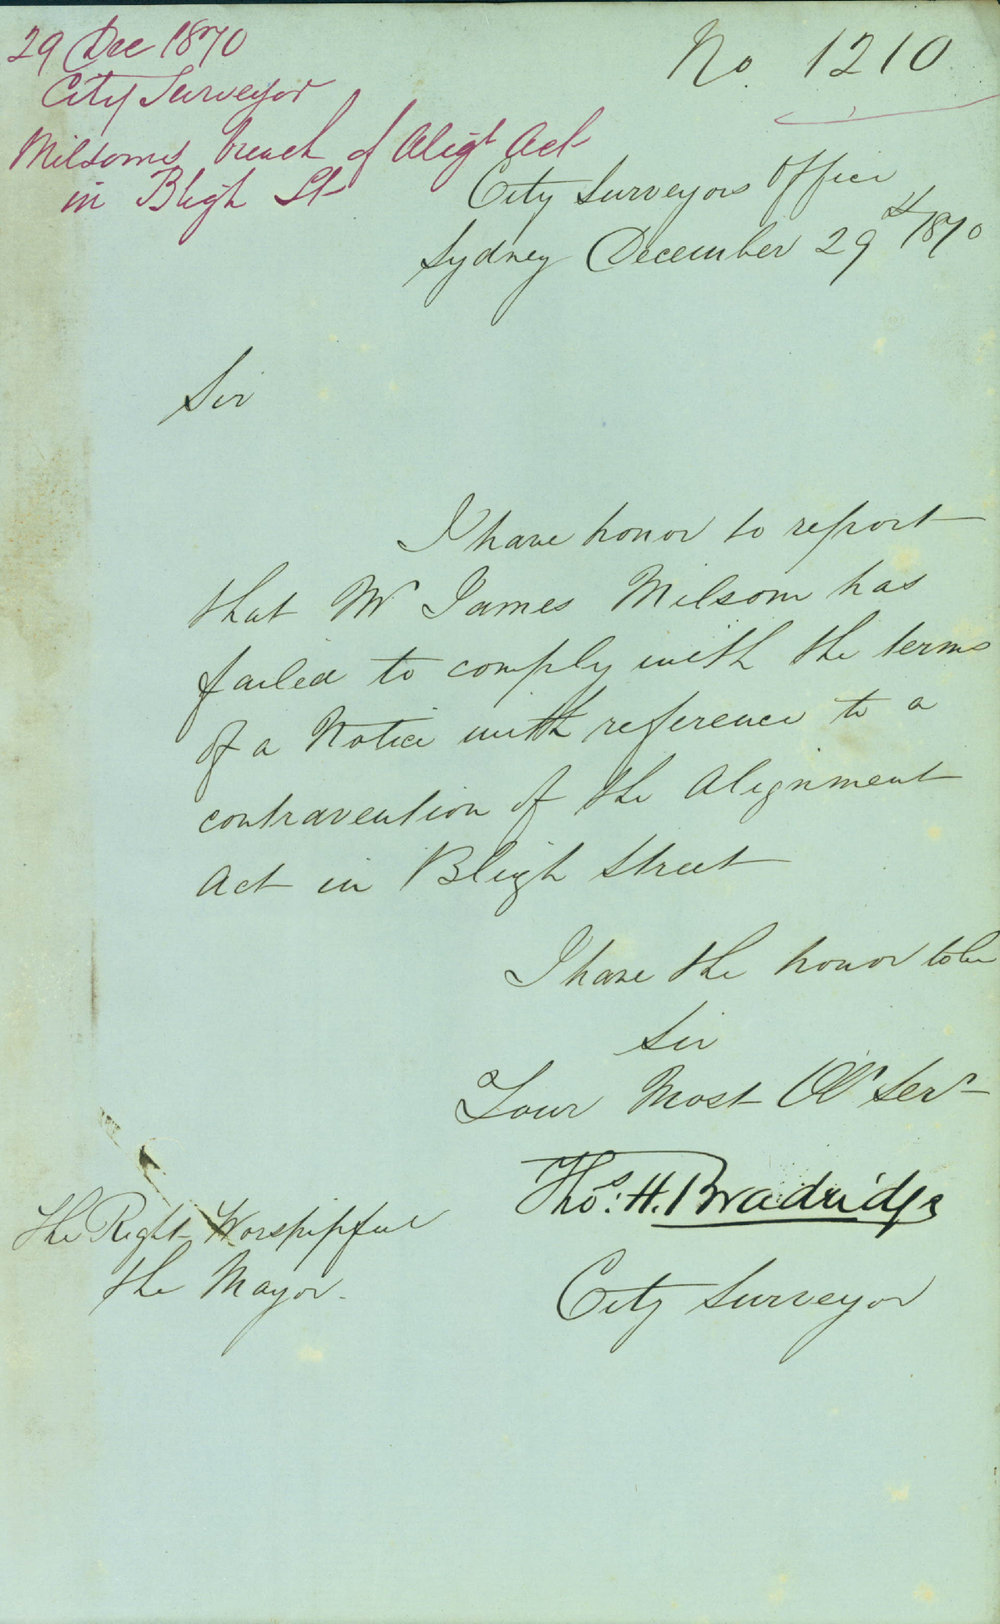 29 Dec 1870
City Surveyor
Milsoms breach of Aligt Act
in Bligh St
No. 1210
City Surveyors Office
Sydney December 29th 1870
Sir
I have honor to report
that Mr James Milsom has
failed to comply with the terms
of a Notice with reference to a
contravention of the Alignment
Act in Bligh Street
I have the honor to be
Sir
Your Most Obt Servt
Thos. H. Bradridge
City Surveyor
The Right Worshipful
the Mayor.